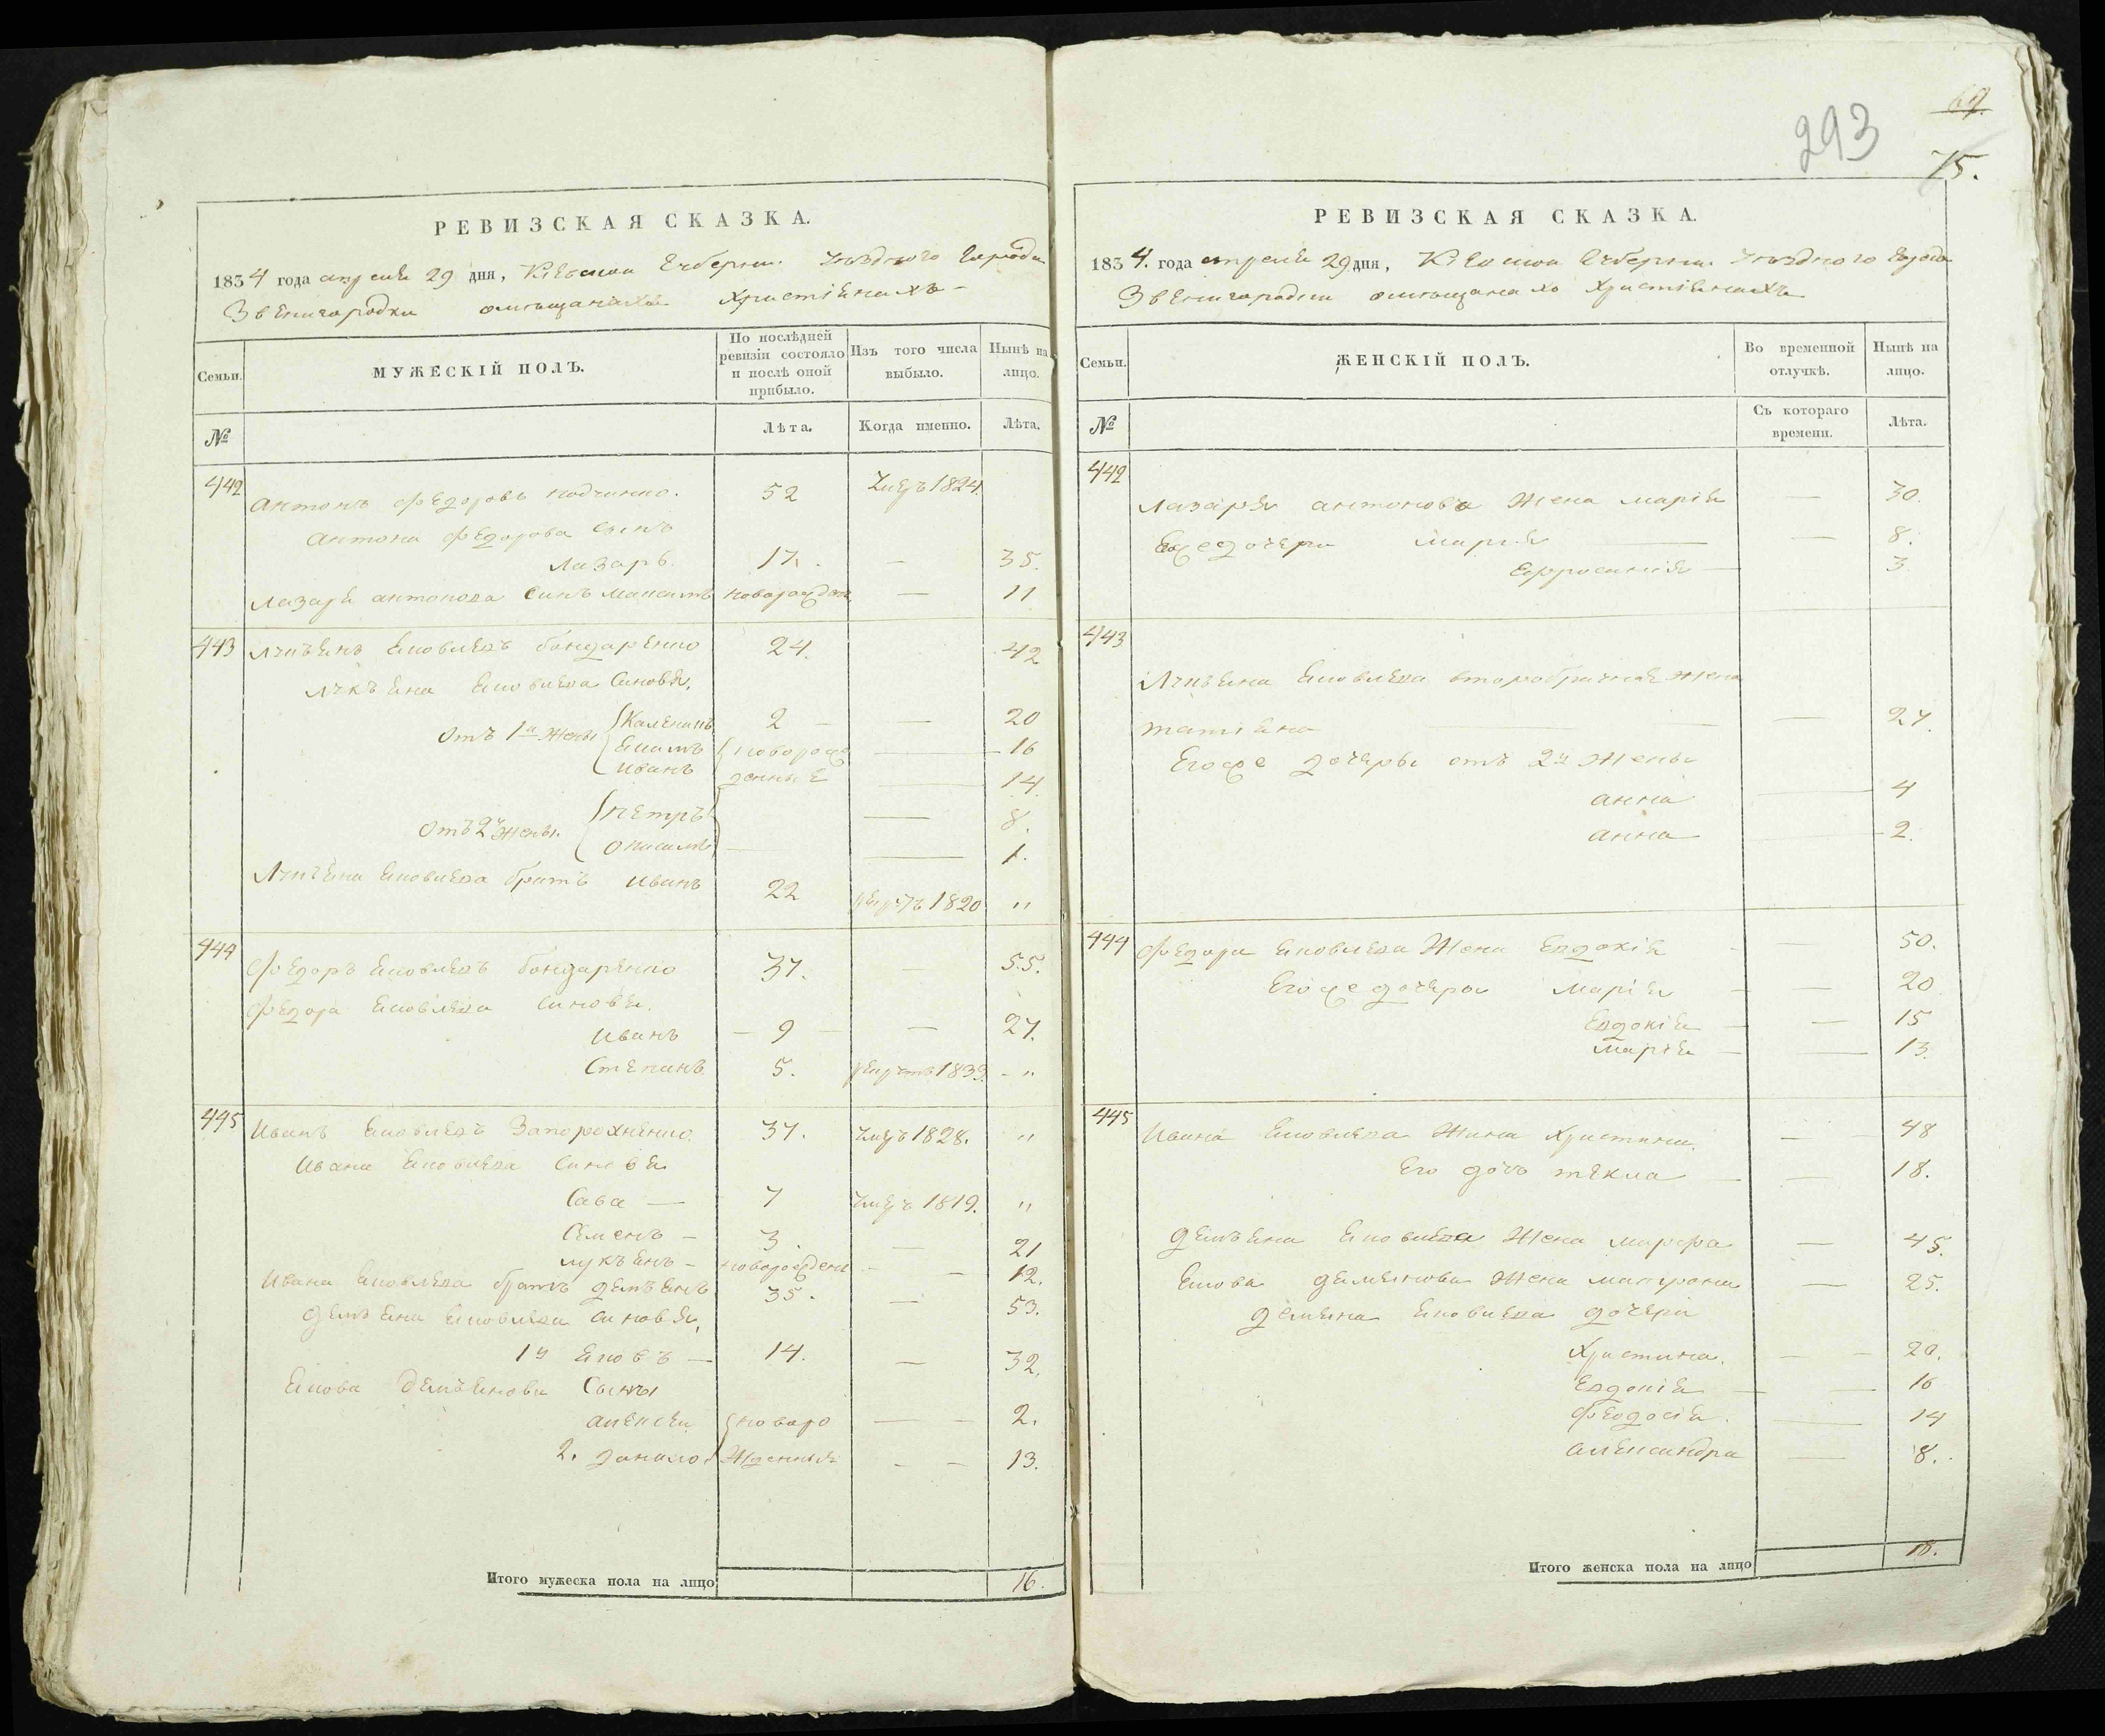 РЕВИЗСКАЯ СКАЗКА.
1834 года апреля 29 дня, Кіевской Губерніи Уѣзднаго Города
Звенигородки омѣщанахъ Христіянахъ
Семьи.
МУЖЕСКІЙ ПОЛЪ.
По послѣдней ревизіи состояло и послѣ оной прибыло.
Изъ того числа выбыло.
Нынѣ на лицо.
№
Лѣта.
Когда именно.
Лѣта.
442
Антонъ Федоровъ 52 1824
Антона Федорова Сынъ
Лазарь. 17. — 35.
Лазаря Антонова Синъ Максимъ новорожден. — 11
443 Лукъянъ Яковлевъ Бондаренко 24. 42
Лукъяна Яковлева Синовья,
Отъ 1й жены
Каленикъ 2 — — 20
Якимъ новорож — 16
Иванъ денные — 14.
Отъ 2й жены.
Петръ — 8.
Онисимъ — — 1.
Лукъяна Яковлева братъ Иванъ 22 рекрутъ 1820 "
444
Федоръ Яковлевъ Бондаренко 37. — 55.
Федора Яковлева Синовья.
Иванъ — 9 — — 27.
Степанъ 5. рекрутъ 1833. - "
445 Иванъ Яковлевъ Запорожненко. 37. умеръ 1828. "
Ивана Яковлева Синовья
Сава — 7 умеръ 1819. "
Семенъ — 3. — 21
Лукъянъ — новорожден - — 12.
Ивана Яковлева братъ Демъянъ 35. — 53.
Демъяна Яковлева Синовья,
1й Яковъ — 14. — 32.
Якова Демъянова Сыны
Алексей новоро — - 2.
2. Данило. жденный - — 13.
Итого мужеска пола на лицо 16.
69
293
75.
РЕВИЗСКАЯ СКАЗКА.
1834. года апреля 29 дня, Кіевской Губерніи Уѣзднаго Города
Звенигородки омѣщанахъ Христіянахъ
Семьи.
ЖЕНСКІЙ ПОЛЪ.
Во временной отлучкѣ.
Нынѣ на лицо.
№
Съ котораго времени.
Лѣта.
442
Лазаря Антонова Жена Марія — 30.
Егоже дочери Марія — — 8.
Ефросинія — 3
443
Лукъяна Яковлева второбрачная жена
Татіяна — — — 27.
Егоже дочеры отъ 2й жены
Анна — 4
Анна — 2.
444 Федора Яковлева Жена Евдокія - — 50.
Егоже дочери Марія — — 20
Евдокія — — 15
Марія — — 13.
445
Ивана Яковлева Жина Христина. — - 48
Его дочъ Текла — — 18.
Демъяна Яковлева Жена Марфа — 45.
Якова Демянова Жена Матрона — 25.
Демяна Яковлева дочери
Христина. — - 20.
Евдокія — — 16
Феодосія. — 14
Александра — 8.
Итого женска пола на лицо 18.